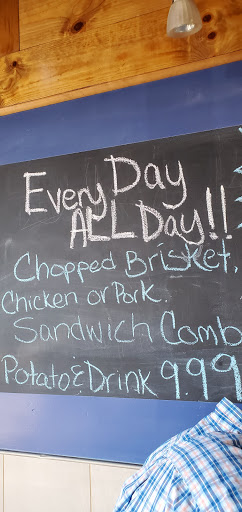 Every Day
ALL Day!!
Chopped Brisket,
Chicken or Pork.
Sandwich Comb
Potato & Drink 9.99